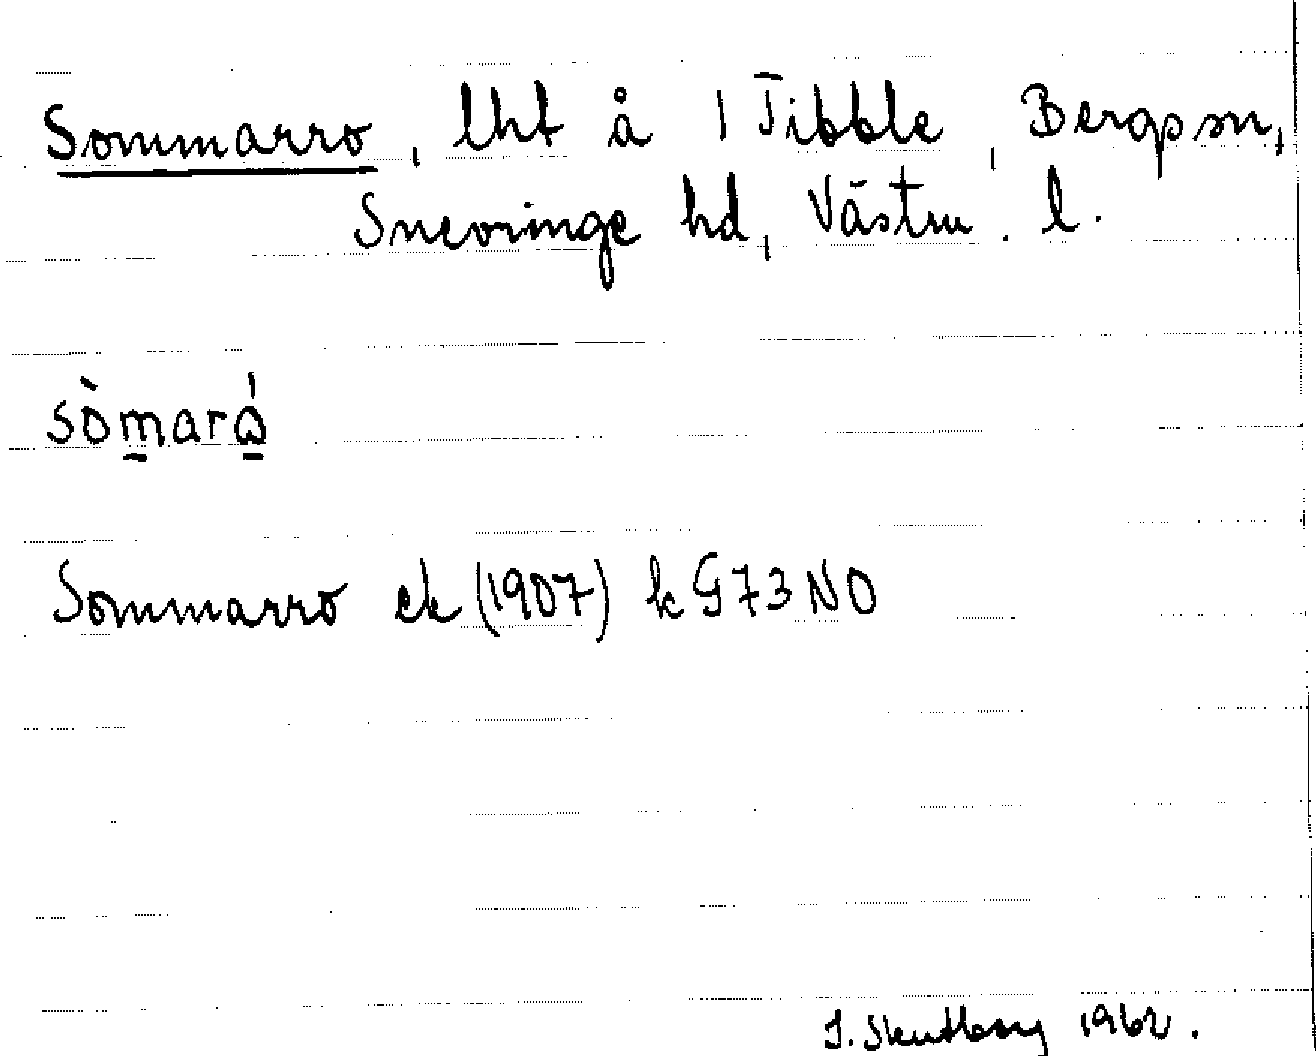 Sommarro, lht å 1 Tibble, Bergs sn,
Snevringe hd, Västm. l.
sòmarώ̣
Sommarro ek (1907) k G73NO
1962.